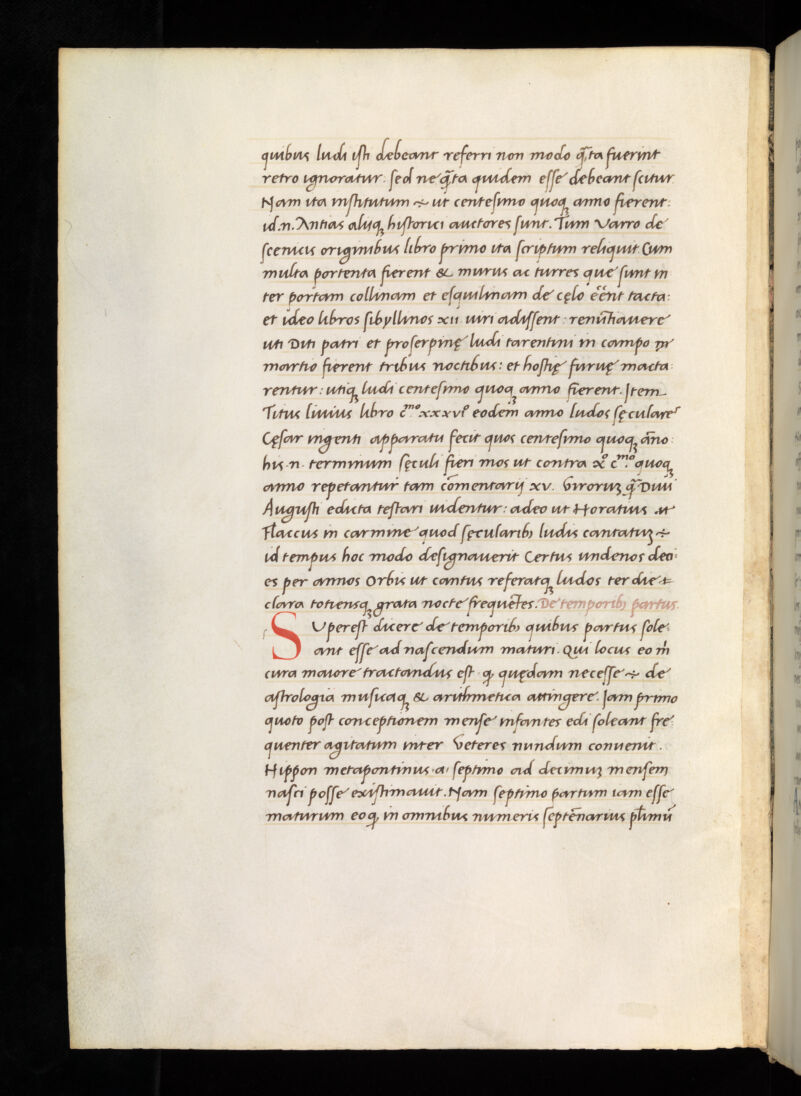 quibus ludi isti debeant referri non modo q̃ta fuerint
retro ignoratur: sed ne q̃ta quidem esse debeant scitur
Nam ita institutum ÷ ut centesimo quoq; anno fierent:
id.n. Antias alijq; historici auctores sunt. Tum Varro de
scenicis originibus libro primo ita scriptum reliquit Cum
multa portenta fierent & murus ac turres que sunt in
ter portam collinam et esquilinam de cęlo eēnt tacta:
et ideo libros sibyllinos xii uiri adissent renūtiauere
uti Diti patri et proserpinę ludi tarentini in campo
martio fierent tribus noctibus: et hostię furuę macta
rentur: utiq; ludi centesimo quoq; anno fierent. Item
Titus liuius libro c̃.mo xxxvi.o eodem anno ludos sęculares
Cęsar ingenti apparatu fecit quos centesimo quoq; āno
his .n. terminum sęculi fieri mos ut contra c.mo quoq;
anno repetantur tam cōmentarij xv. Viroruʒ q̃ Diui
Augusti edicta testari uidentur: adeo ut Horatius
Flaccus in carmine quod sęcularib; ludis cantatuʒ ÷
id tempus hoc modo designauerit Certus undenos deci
es per annos Orbis ut cantus referatq; ludos ter die
clara totiensq; grata nocte frequētes. De temporib; partus.
SVperest dicere de temporib; quibus partus sole
ant esse ad nascendum maturi. Qui locus eo m̃
cura maiore tractandus est q; quędam necesse ÷ de
astrologia musicaq; & arithmetica attingere. Iam primo
quoto post conceptionem mense infantes edi soleant fre
quenter agitatum inter Veteres nundum conuenit.
Hippon metapontinus a septimo ad decimuʒ mensem
nasci posse existimauit. Nam septimo partum iam esse
maturum eo q; in omnibus numeris septēnarius plīmū